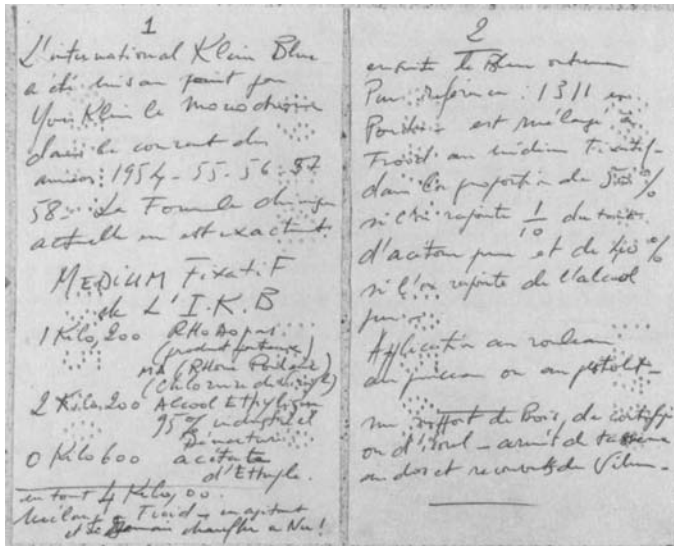 1
L'international Klein Blue
a été mis au point par
Yves Klein le monochrome
dans le courant des
années : 1954 - 55 - 56 - 57
58 - La Formule chimique
actuelle en est exactement
MEDIUM FixatiF
de L'I.K.B
1 Kilo,200 RHodopas
(produit pateux)
MA (RHone Poulenc)
(Chlorure de vinyle)
2 Kilo,200 Alcool EtHylique
95% industriel
Dénaturé
0 Kilo 600 acétate
d'Ethyle.
en tout 4 Kilo,00.
Mélange à Froid - en agitant
et chauffer à Nu!
2
ensuite le Bleu outremer
Pur référence : 1311 en
Poudre est mélangé à
Froid au médium Fixatif
dans la proportion de 50%
si l'on rajoute 1/10 du
d'acétone pure et de 40%
si l'on rajoute de l'alcool
pur.
Application au rouleau
au pinceau ou au pistolet -
sur support de Bois, de
ou d' - armé de
au dos et recouvert de